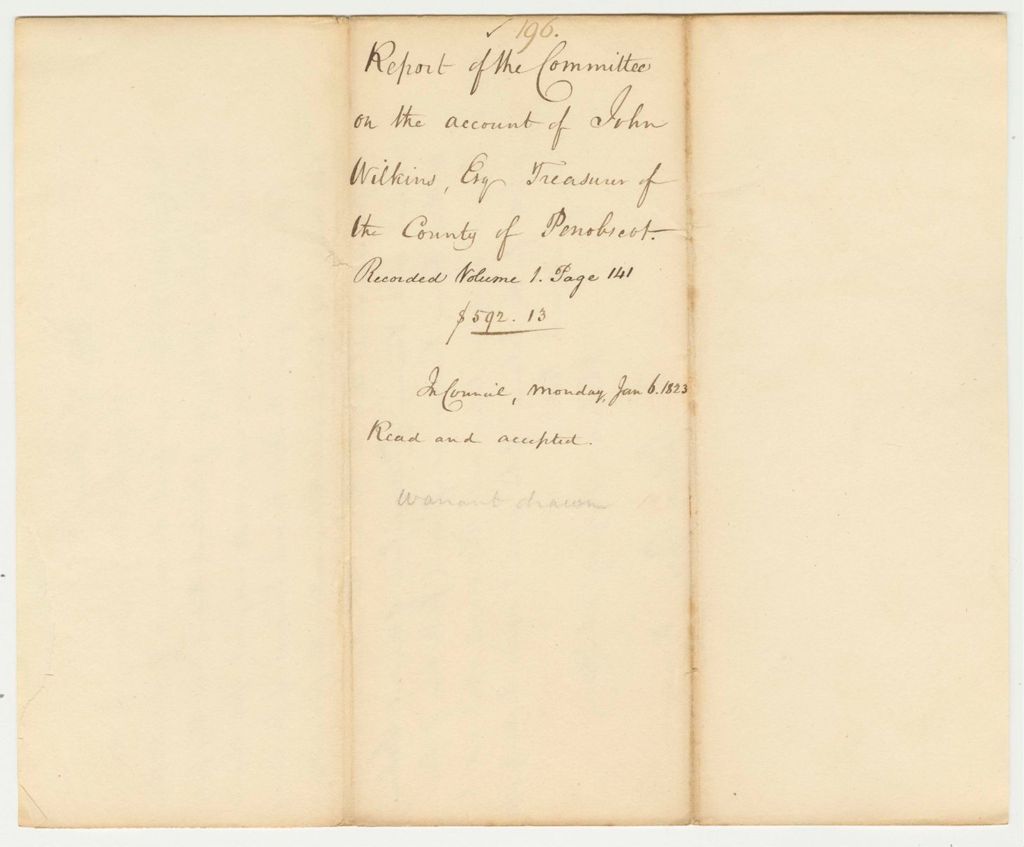 ✓ 196.
Report of the Committee
on the account of John
Wilkins, Esq Treasurer of
the County of Penobscot.
Recorded Volume 1. Page 141
$592.13
In Council, Monday, Jan 6. 1823
Read and accepted.
Warrant drawn